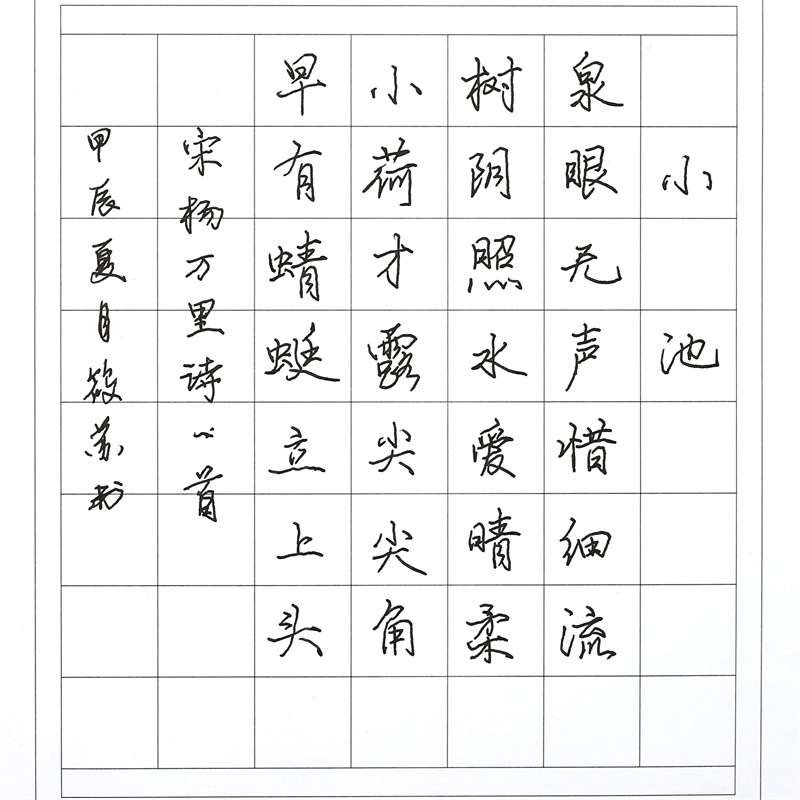 小池
泉眼无声惜细流
树阴照水爱晴柔
小荷才露尖尖角
早有蜻蜓立上头
宋杨万里诗一首
甲辰夏月筱苏书